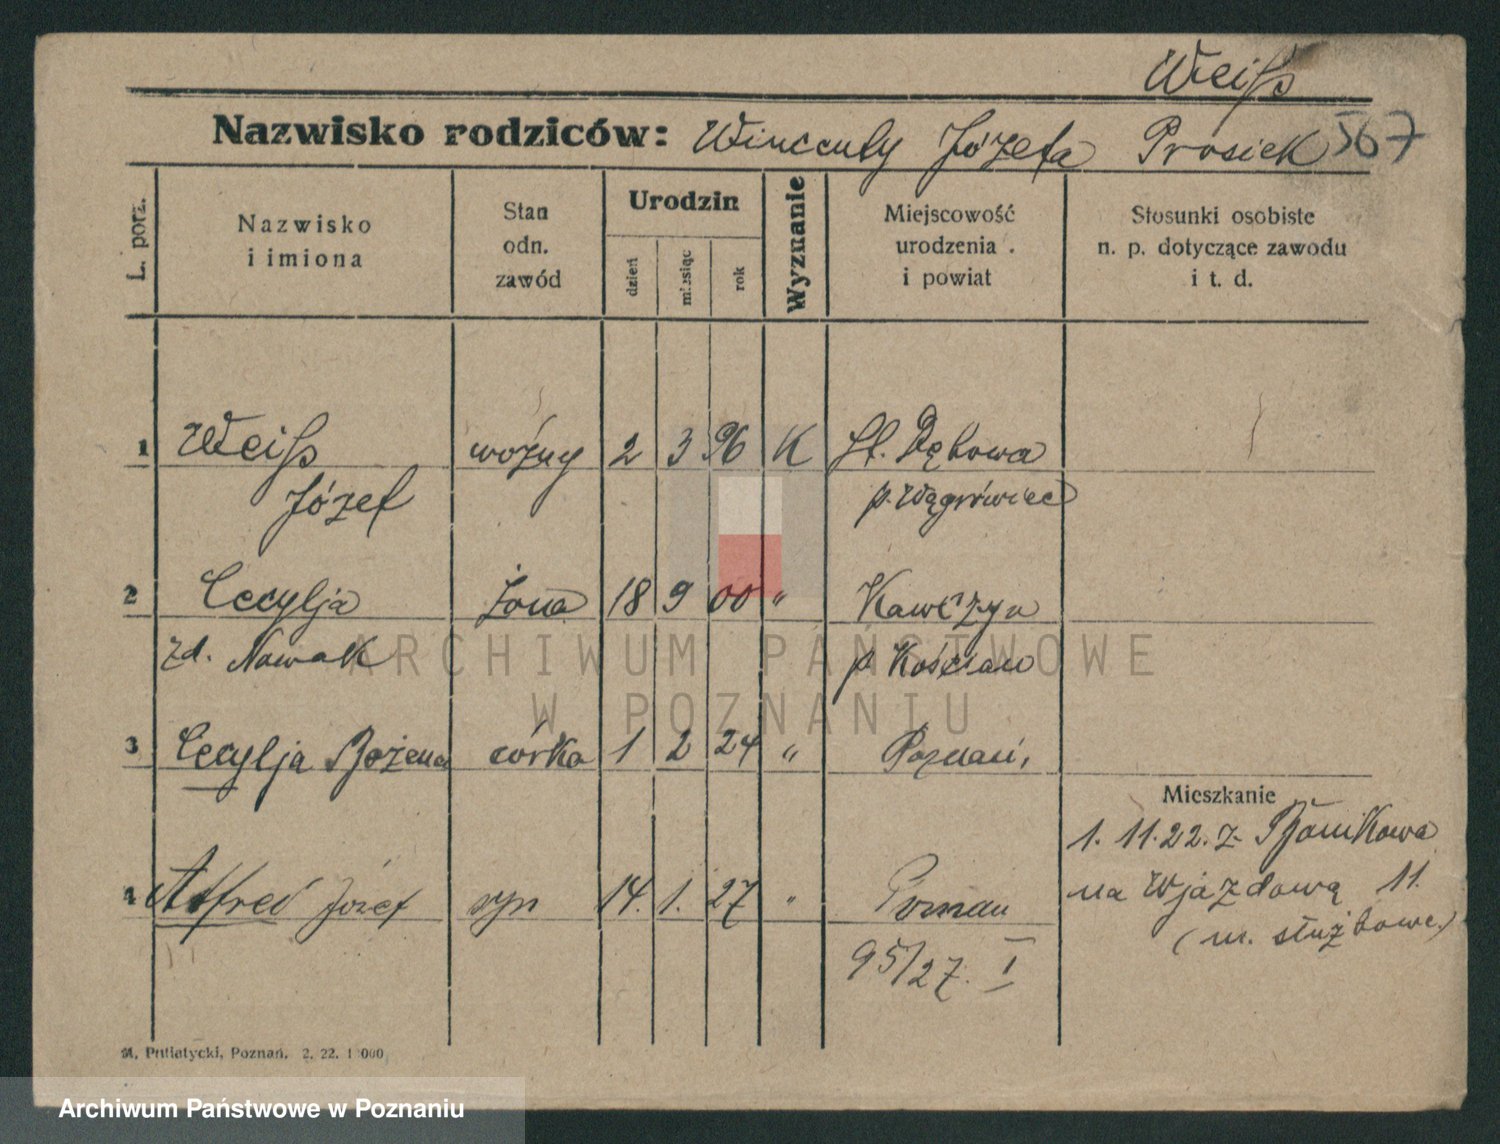 Weiss
Nazwisko rodziców: Wincenty Józefa Prosiek 567
L. porz.
Nazwisko
i imiona
Stan
odn.
zawód
Urodzin
dzień
miesiąc
rok
Wyznanie
Miejscowość
urodzenia .
i powiat
Stosunki osobiste
n. p. dotyczące zawodu
i t. d.
1 Weiss woźny 2 3 96 K Dębowa
Józef p. Wągrówiec
2 Cecylja żona 18 9 00 " Kawczyn
zd. Nowak p Kościan
ARCHIWUM PAŃSTWOWE
W POZNANIU
3 Cecylja Bożena córka 1 2 24 " Poznań,
Mieszkanie
1. 11.22. z. Bonikowa
4 Alfred Józef syn 14. 1. 27 " Poznań
na Wjazdową 11.
(m. służbowe.)
95/27. I
M. Putiatycki, Poznań. 2. 22. 1 000
Archiwum Państwowe w Poznaniu